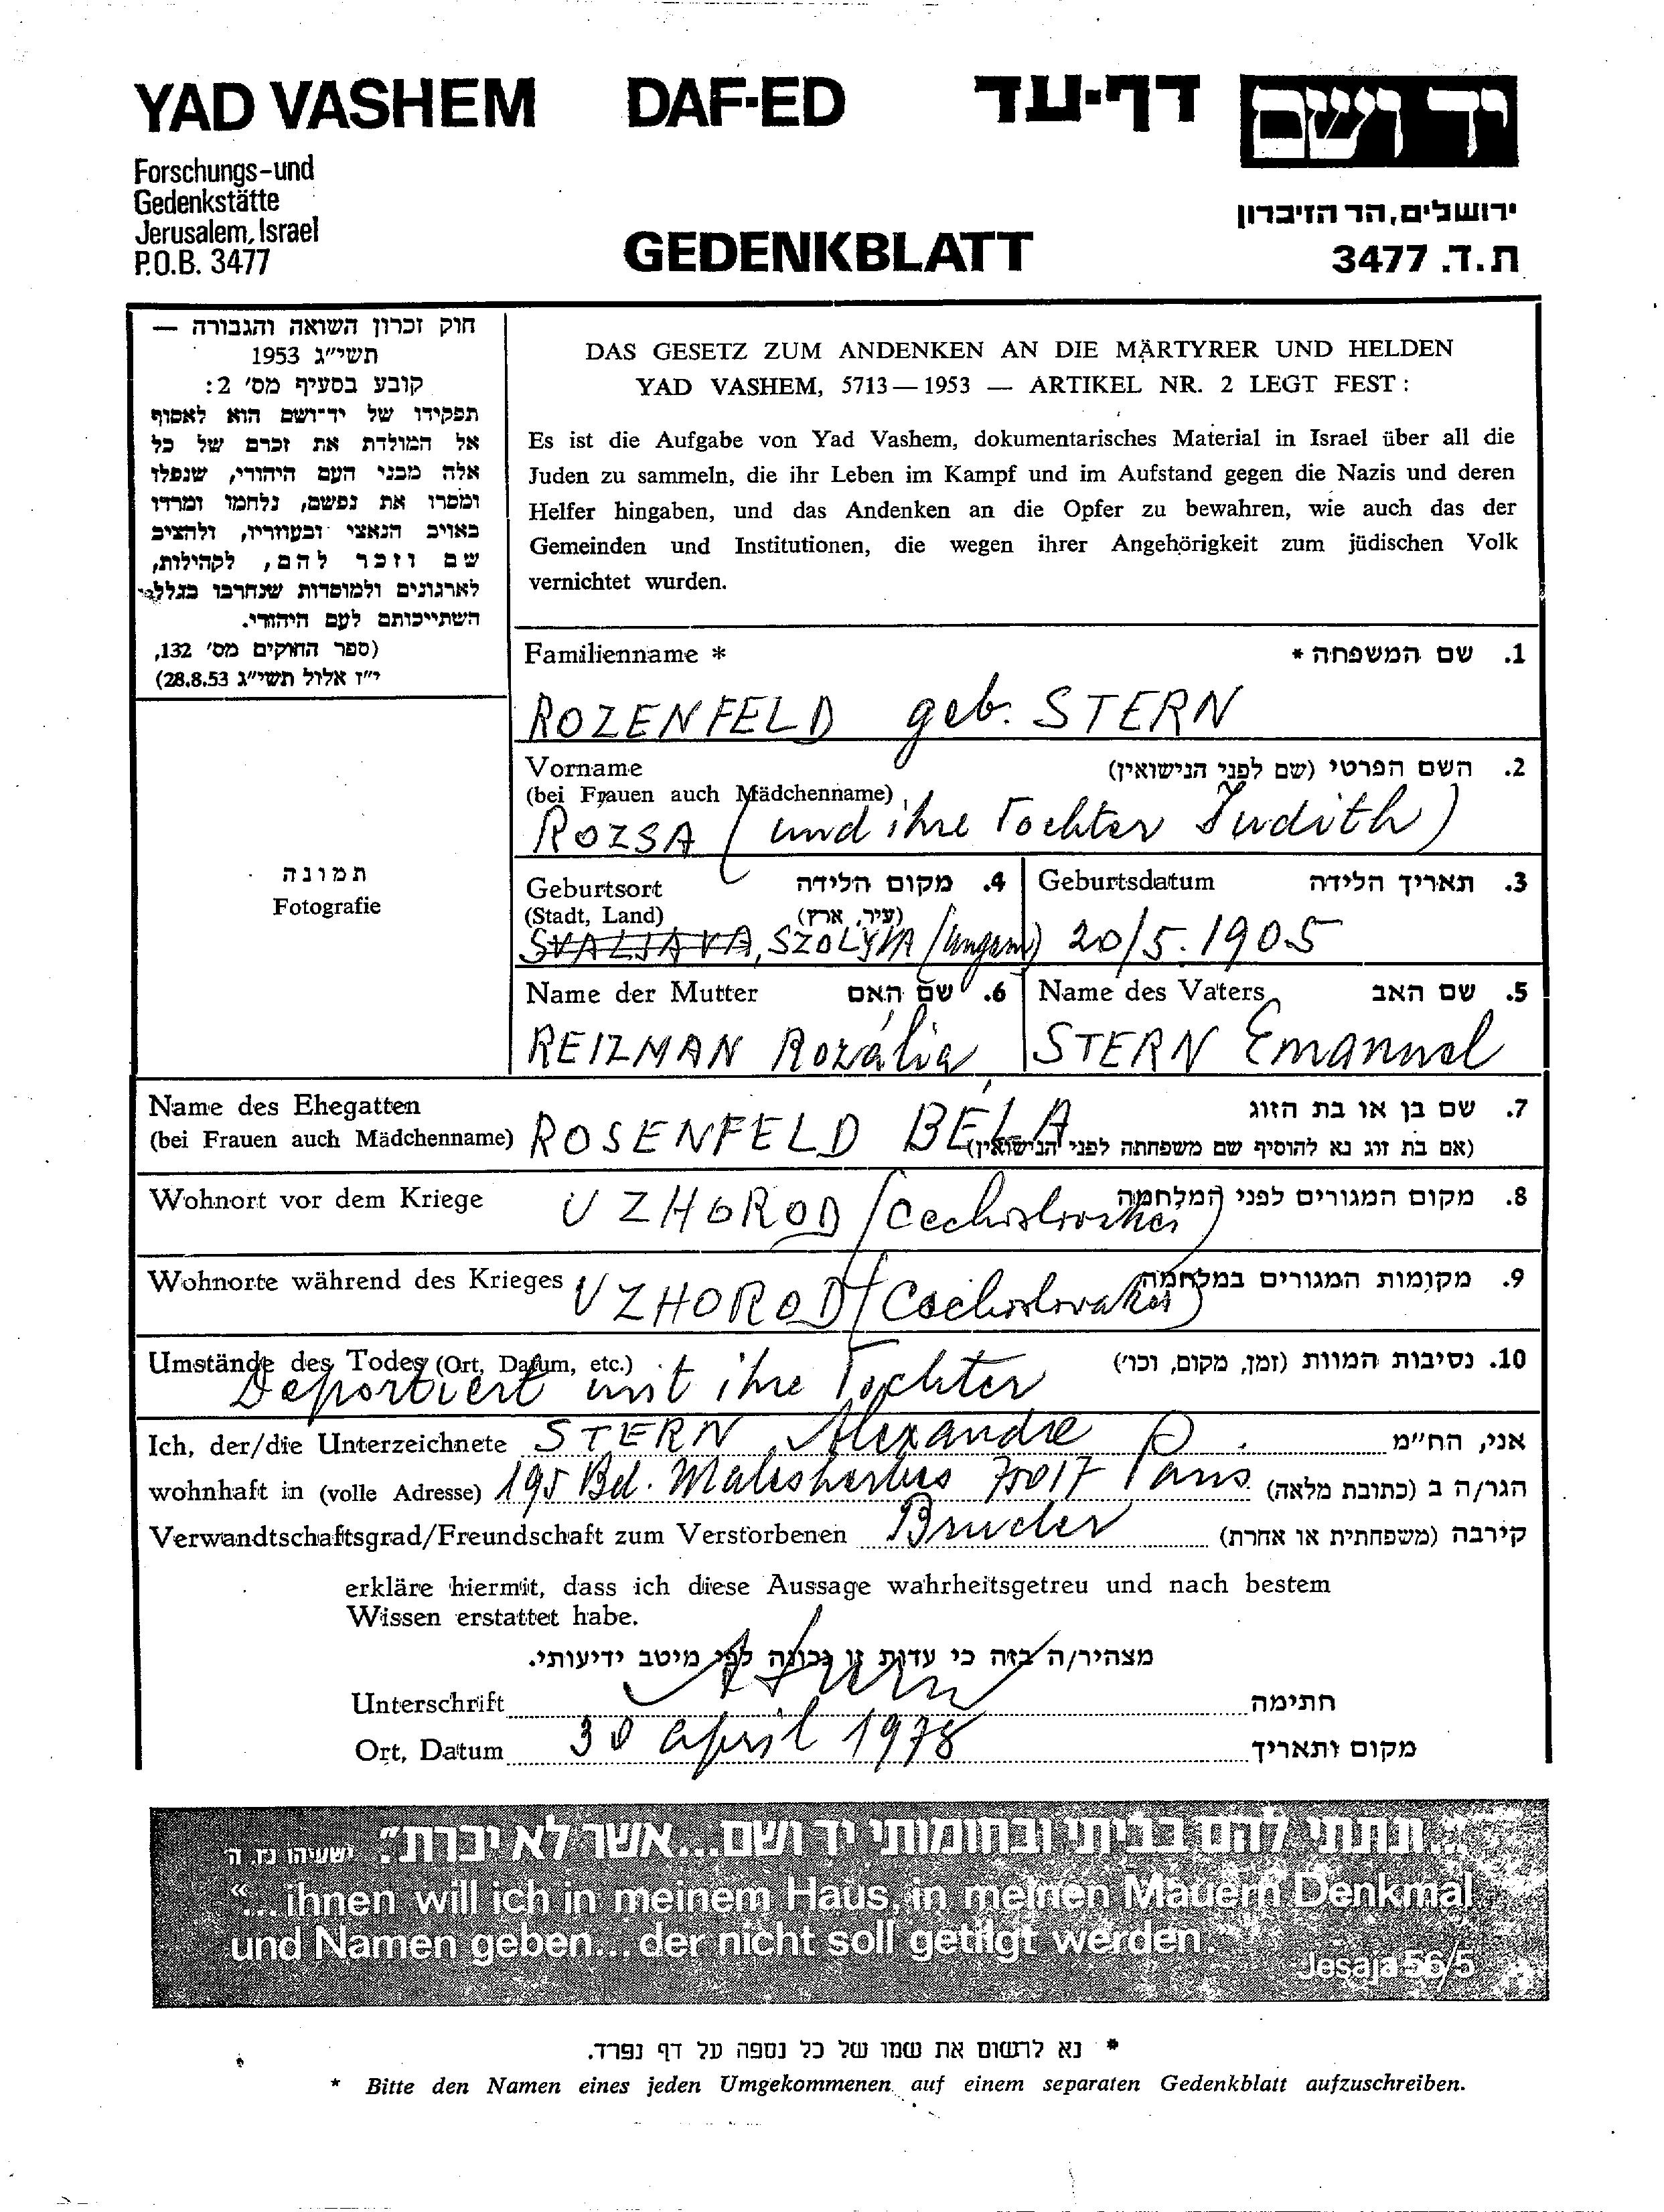 YAD VASHEM DAF-ED דף-עד יד ושם
Forschungs-und
Gedenkstätte
Jerusalem, Israel
P.O.B. 3477
ירושלים, הר הזיכרון
ת.ד. 3477
GEDENKBLATT
חוק זכרון השואה והגבורה —
תשי״ג 1953
קובע בסעיף מס׳ 2:
תפקידו של יד־ושם הוא לאסוף
אל המולדת את זכרם של כל
אלה מבני העם היהודי, שנפלו
ומסרו את נפשם, נלחמו ומרדו
באויב הנאצי ובעוזריו, ולהציב
שם וזכר להם, לקהילות,
לארגונים ולמוסדות שנחרבו בגלל
השתייכותם לעם היהודי.
(ספר החוקים מס׳ 132,
י״ז אלול תשי״ג 28.8.53)
DAS GESETZ ZUM ANDENKEN AN DIE MÄRTYRER UND HELDEN
YAD VASHEM, 5713 — 1953 — ARTIKEL NR. 2 LEGT FEST:
Es ist die Aufgabe von Yad Vashem, dokumentarisches Material in Israel über all die
Juden zu sammeln, die ihr Leben im Kampf und im Aufstand gegen die Nazis und deren
Helfer hingaben, und das Andenken an die Opfer zu bewahren, wie auch das der
Gemeinden und Institutionen, die wegen ihrer Angehörigkeit zum jüdischen Volk
vernichtet wurden.
תמונה
Fotografie
Familienname * 1. שם המשפחה *
ROZENFELD geb. STERN
Vorname 2. השם הפרטי (שם לפני הנישואין)
(bei Frauen auch Mädchenname)
ROZSA (und ihre Tochter Judith)
Geburtsort 4. מקום הלידה
(Stadt, Land) (עיר, ארץ)
SVALJAVA, SZOLYVA (Ungarn)
Geburtsdatum 3. תאריך הלידה
20/5.1905
Name der Mutter 6. שם האם
REIZMAN Rozália
Name des Vaters 5. שם האב
STERN Emanuel
Name des Ehegatten 7. שם בן או בת הזוג
(bei Frauen auch Mädchenname) ROSENFELD BÉLA (אם בת זוג נא להוסיף שם משפחתה לפני הנישואין)
Wohnort vor dem Kriege UZHOROD (Cechoslovakei) 8. מקום המגורים לפני המלחמה
Wohnorte während des Krieges UZHOROD (Cechoslovakei) 9. מקומות המגורים במלחמה
Umstände des Todes (Ort, Datum, etc.) 10. נסיבות המוות (זמן, מקום, וכו׳)
Deportiert mit ihre Tochter
Ich, der/die Unterzeichnete STERN Alexandre אני, הח״מ
wohnhaft in (volle Adresse) 195 Bd. Malesherbes 75017 Paris הגר/ה ב (כתובת מלאה)
Verwandtschaftsgrad/Freundschaft zum Verstorbenen Bruder קירבה (משפחתית או אחרת)
erkläre hiermit, dass ich diese Aussage wahrheitsgetreu und nach bestem
Wissen erstattet habe.
מצהיר/ה בזה כי עדות זו נכונה לפי מיטב ידיעותי.
Unterschrift AStern חתימה
Ort, Datum 30 april 1978 מקום ותאריך
״...ונתתי להם בביתי ובחומותי יד ושם...אשר לא יכרת״. ישעיהו נו, ה׳
“... ihnen will ich in meinem Haus, in meinen Mauern Denkmal
und Namen geben... der nicht soll getilgt werden.
Jesaja 56/5
* נא לרשום את שמו של כל נספה על דף נפרד.
* Bitte den Namen eines jeden Umgekommenen auf einem separaten Gedenkblatt aufzuschreiben.